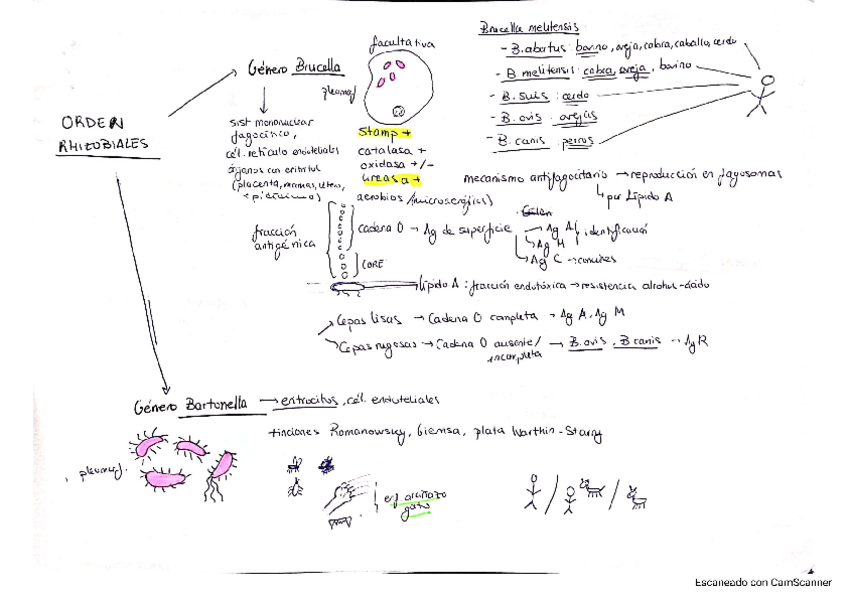 ORDEN
RHIZOBIALES
Género Brucella
facultativa
pleomorf
sist mononuclear
fagocítico,
cél. retículo endoteliales
órganos con eritritol
(placenta, mamas, útero,
epidídimo)
Stamp +
catalasa +
oxidasa +/-
ureasa +
aerobios /microaerófilos)
Brucella melitensis
- B. abortus: bovino, oveja, cabra, caballo, cerdo
- B. melitensis: cabra, oveja, bovino
- B. suis: cerdo
- B. ovis: ovejas
- B. canis: perros
mecanismo antifagocitario → reproducción en fagosomas
por Lípido A
fracción
antigénica
cadena O → Ag de superficie
Ag A
Ag M
identificación
Ag C → comunes
CORE
Lípido A: fracción endotóxica → resistencia alcohol-ácido
Cepas lisas → Cadena O completa → Ag A, Ag M
Cepas rugosas → Cadena O ausente/
incompleta
→ B. ovis, B. canis → Ag R
Género Bartonella → eritrocitos, cél. endoteliales
tinciones Romanowsky, Giemsa, plata Warthin-Starry
pleomorf.
ej arañazo
gato
Escaneado con CamScanner